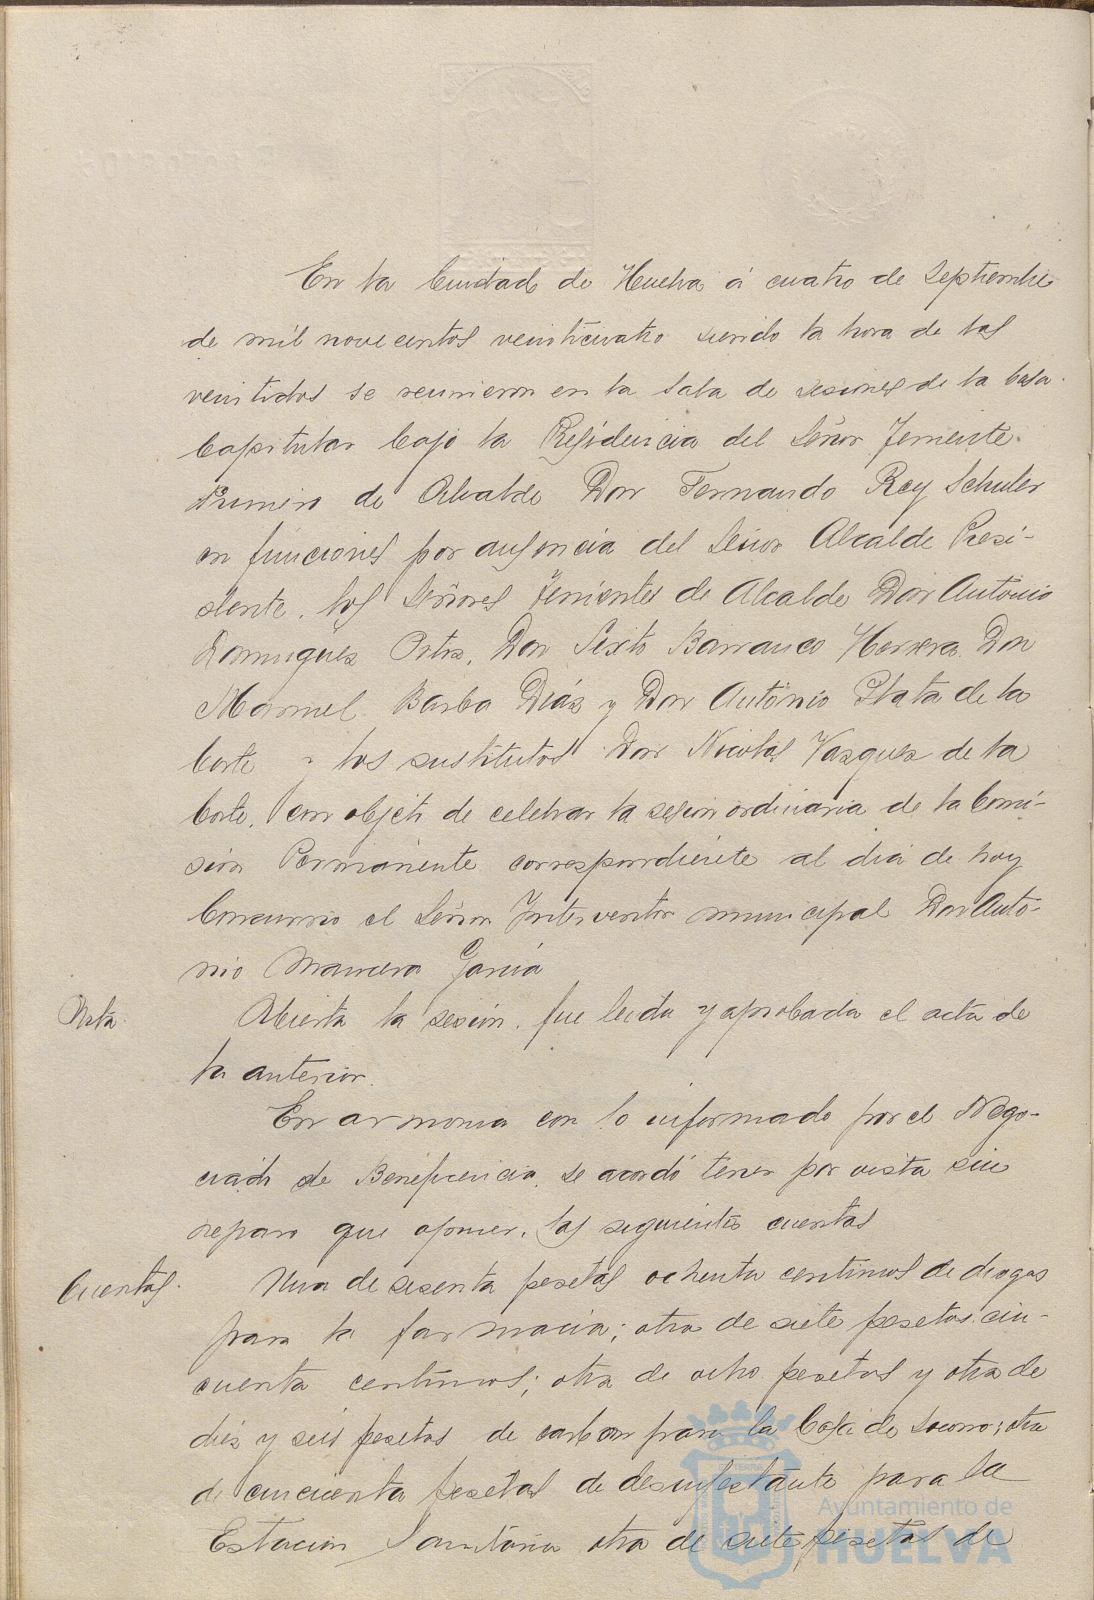 En la Ciudad de Huelva á cuatro de Septiembre
de mil novecientos veinticuatro siendo la hora de las
veintidos se reunieron en la Sala de sesiones de la Casa
Capitular bajo la Presidencia del Señor Teniente
Primero de Alcalde Don Fernando Rey Schuler
en funciones por ausencia del Señor Alcalde Presi-
dente, los Señores Tenientes de Alcalde Don Antonio
Dominguez Ortiz, Don Sixto Barranco Herrera Don
Manuel Barba Diáz y Don Antonio Plata de la
Corte y los sustitutos Don Nicolás Vazquez de la
Corte, con objeto de celebrar la sesión ordinaria de la Comi-
sión Permanente correspondiente al día de hoy
Concurrio el Señor Interventor municipal Don Anto-
nio Mancera García
Abierta la sesión, fue leida y aprobada el acta de
la anterior.
En armonia con lo informado por el Nego-
ciado de Beneficencia, se acordó tener por vista sin
reparo que oponer, las siguientes cuentas
Cuentas. Una de sesenta pesetas ochenta centimos de drogas
para la farmacia; otra de siete pesetas cin-
cuenta centimos; otra de ocho pesetas y otra de
diéz y seis pesetas de carbon para la Casa de Socorro; otra
de cincuenta pesetas de desinfestante para la
Estacion Sanitaria otra de siete pesetas de
Ayuntamiento de
HUELVA